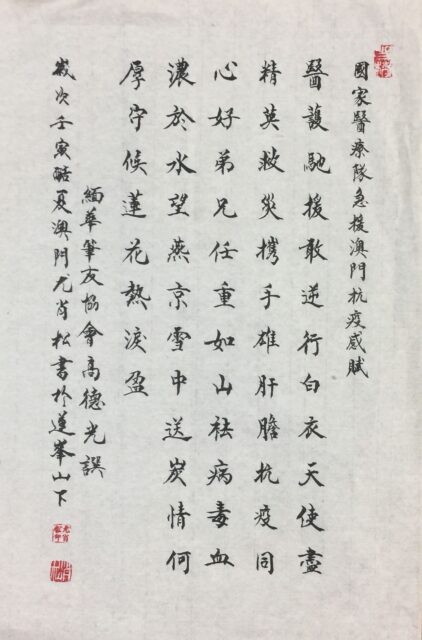 國家醫療隊急援澳門抗疫感賦
醫護馳援敢逆行白衣天使盡
精英救災携手雄肝膽抗疫同
心好弟兄任重如山祛病毒血
濃於水望燕京雪中送炭情何
厚守候蓮花熱淚盈
緬華筆友協會高德光譔
歲次壬寅酷夏澳門尤肖松書於蓮峯山下